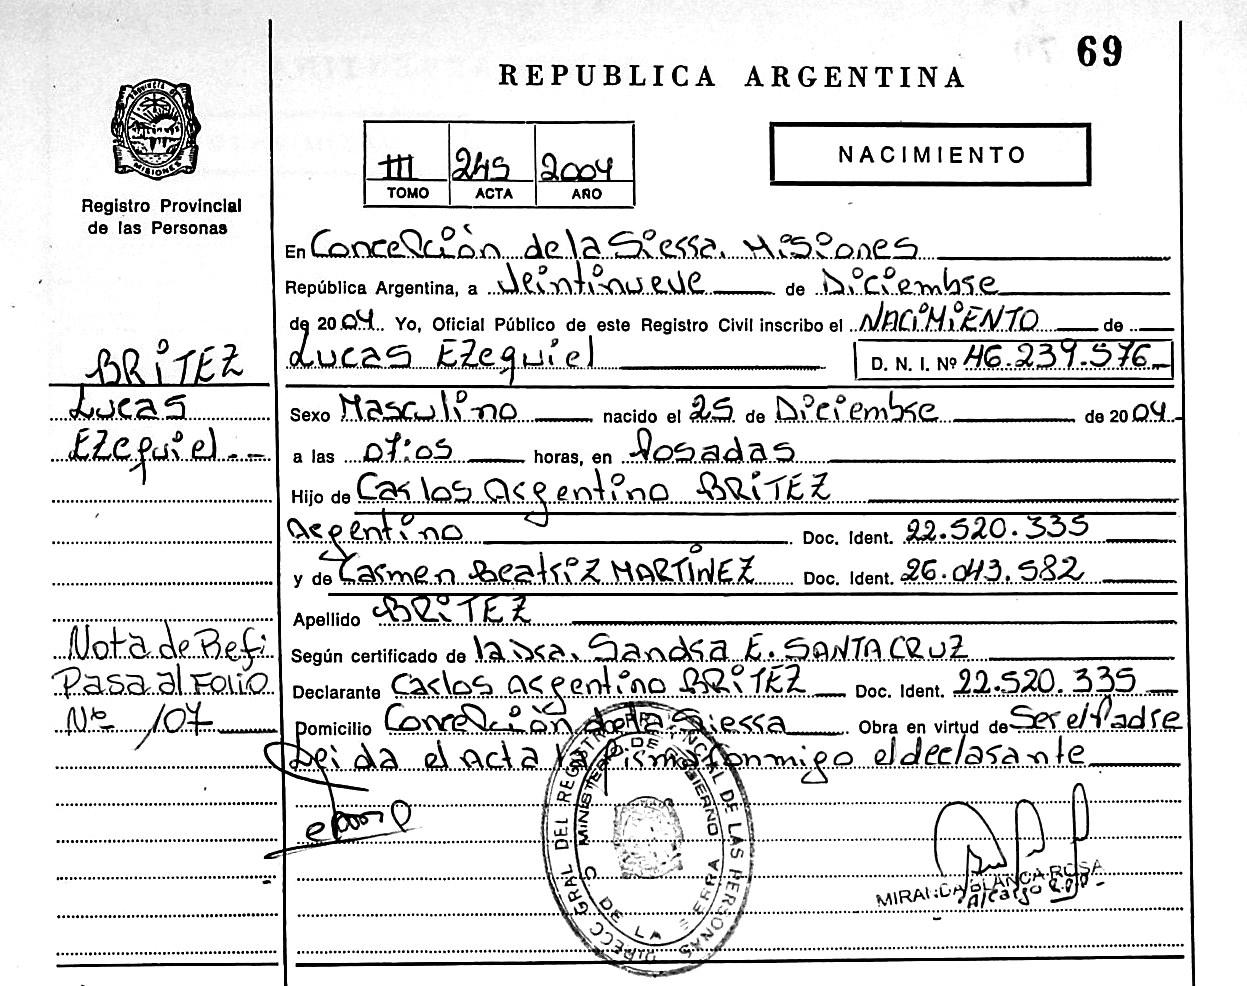 69
REPUBLICA ARGENTINA
PROVINCIA DE MISIONES
Registro Provincial
de las Personas
III 245 2004
TOMO ACTA AÑO
NACIMIENTO
En Concepción de la Sierra. Misiones
República Argentina, a Veintinueve de Diciembre
de 2004. Yo, Oficial Público de este Registro Civil inscribo el NACIMIENTO de
Lucas Ezequiel D. N. I. Nº 46.239.576
BRITEZ
Lucas
Ezequiel.--
Sexo Masculino nacido el 25 de Diciembre de 2004
a las 07:05 horas, en Posadas
Hijo de Carlos Argentino BRITEZ
Argentino Doc. Ident. 22.520.335
y de Carmen Beatriz MARTÍNEZ Doc. Ident. 26.043.582
Apellido BRITEZ
Según certificado de la Dra. Sandra E. SANTACRUZ
Declarante Carlos Argentino BRITEZ Doc. Ident. 22.520.335
Domicilio Concepción de la Sierra Obra en virtud de Ser el Padre
Leida el Acta la firma conmigo el declarante
Nota de Refe
Pasa al FOLIO
Nº 107
DIRECC GRAL DEL REGISTRO PROVINCIAL DE LAS PERSONAS
MINISTERIO DE GOBIERNO
C DE LA SIERRA
MIRANDA BLANCA ROSA